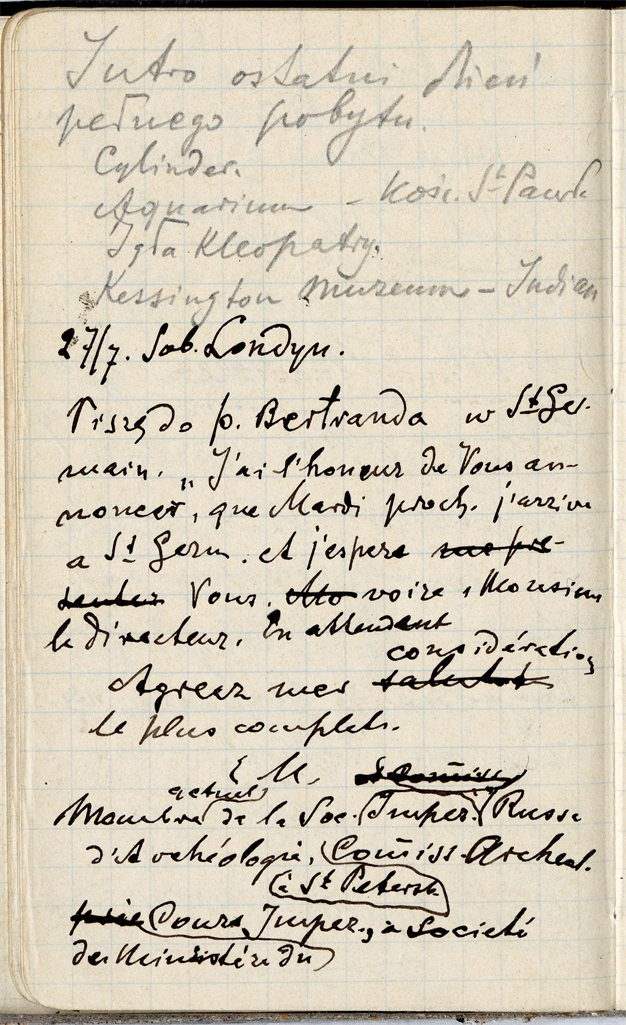 Jutro ostatni dzień
pełnego pobytu.
Cylinder.
Aquarium - Kośc. St Pawła
Igła Kleopatry.
Kessington muzeum - Indian
27/7. Sob. Londyn.
Piszę do p. Bertranda w St Ger-
main. „J'ai l'honeur de Vous an-
noncer, que Mardi proch. j'arrive
a St Germ. et j'espere me pre-
senter Vous. voire, Monsieur
le directeur. En attendent
considération
Agreez mes saluts
le plus complets.
E. M.
actuel
Membre de la Soc. Imper. Russe
d'Archéologie, Comiss. Archeol.
à St Petersb.
Cours, Imper., a Societé
de Ministére du